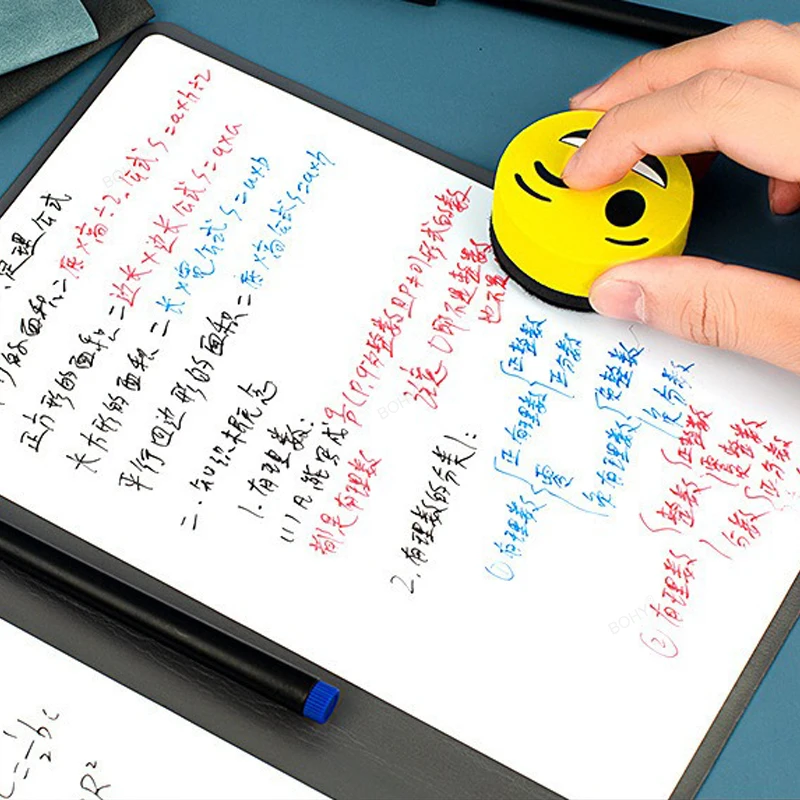 定理公式
的面积=底×高÷2。公式S=a×h÷2
正方形的面积=边长×边长 公式S=a×a
长方形的面积=长×宽 公式S=a×b
平行四边形的面积=底×高 公式S=a×h
二.知识概念
1.有理数:
(1)凡能写成 (P,q为整数且P≠0)形式的数
都是有理数
注意 0即不是整数
也不是
2.有理数的分类:
①有理数 正有理数 正整数
正分数
零
负有理数 负整数
负分数
②有理数 整数 正整数
零
负整数
分数 正分数
BOHY
R²